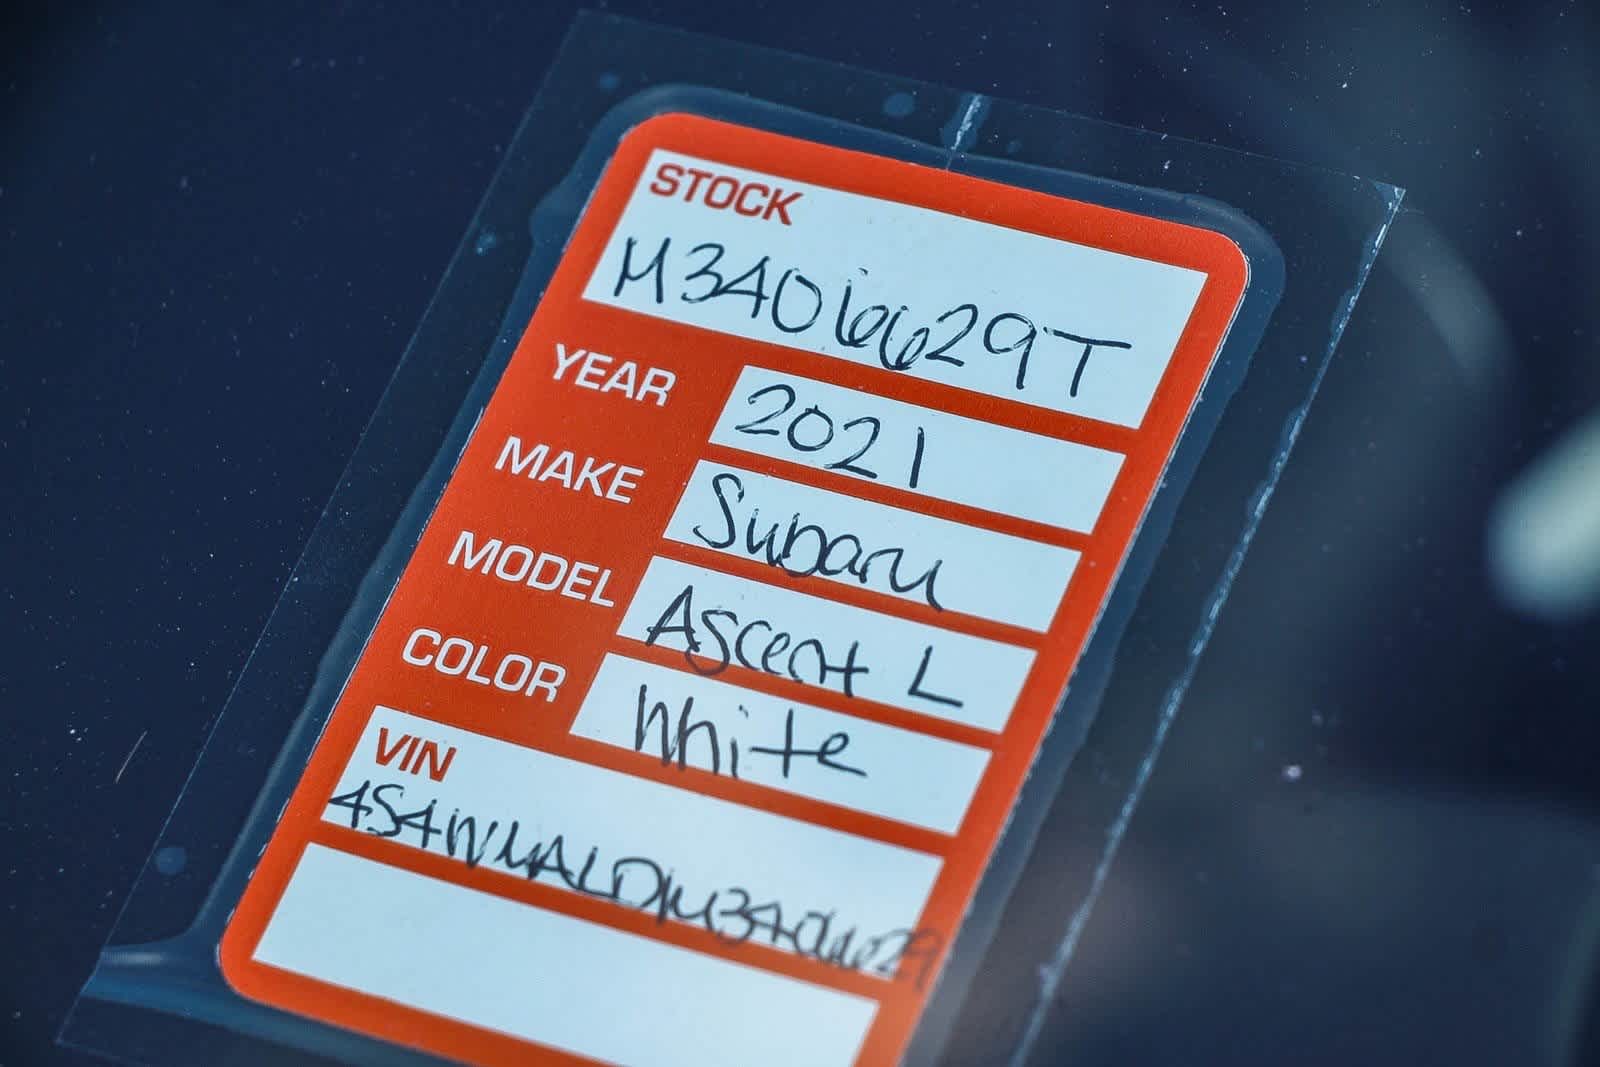 STOCK
M3406629T
YEAR 2021
MAKE Subaru
MODEL Ascent L
COLOR White
VIN
4S4WMALD1M3406629